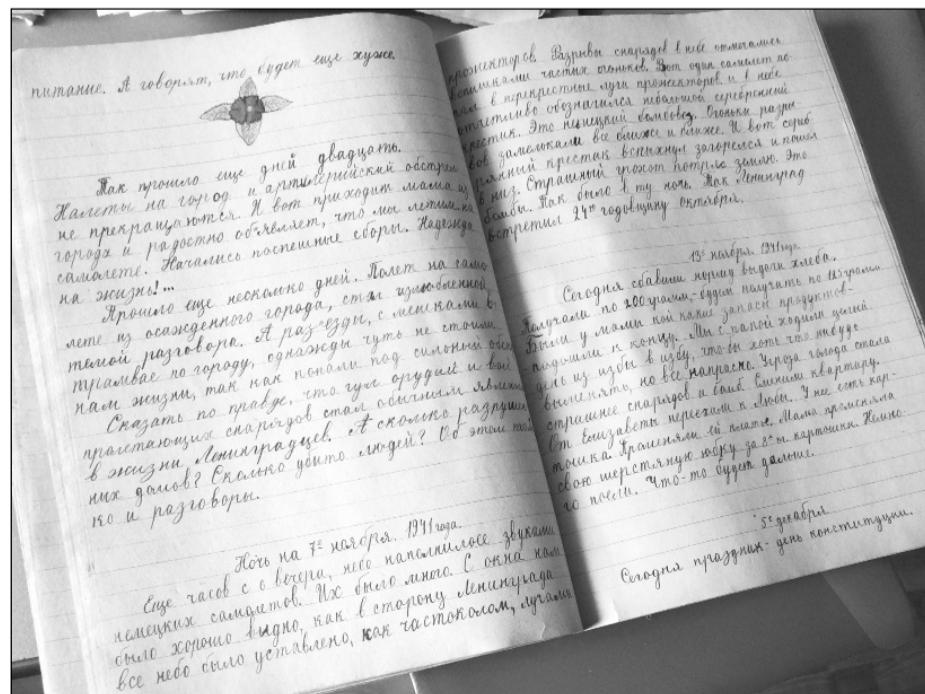 питание. А говорят, что будет еще хуже.
Так прошло еще дней двадцать.
Налеты на город и артиллерийский обстрел
не прекращаются. И вот приходит мама из
города и радостно объявляет, что мы летим на
самолете. Начались поспешные сборы. Надежда
на жизнь!...
Прошло еще несколько дней. Полет на само
лете из осажденного города, стал излюбленной
темой разговора. А разъезды, с мешками в
трамвае по городу, однажды чуть не стоили
нам жизни, так как попали под сильный обст
Сказать по правде, что гул орудий и вой
пролетающих снарядов стал обычным явлен
в жизни Ленинградцев. А сколько разруше
ных домов? Сколько убито людей? Об этом толь
ко и разговоры.
Ночь на 7е ноября. 1941 года.
Еще часов с 6 вечера, небо наполнилось звуками
немецких самолетов. Их было много. С окна нам
было хорошо видно, как в сторону Ленинграда
все небо было уставлено, как частоколом, лучами
прожекторов. Разрывы снарядов в небе отмечались
вспышками частых огоньков. Вот один самолет по-
пал в перекрестные лучи прожекторов и в небе
отчетливо обозначился небольшой серебренный
крестик. Это немецкий бомбовоз. Огоньки разры
вов замелькали все ближе и ближе. И вот сереб
рянный крестик вспыхнул загорелся и пошел
в низ. Страшный грохот потряс землю. Это
бомбы. Так было в ту ночь. Так Ленинград
встретил 24ю годовщину октября.
13е ноября. 1941 года
Сегодня сбавили норму выдачи хлеба.
Получали по 200 грамм,- будем получать по 125 грамм
Были у мамы кой какие запасы продуктов-
подошли к концу. Мы с папой ходили целый
день из избы в избу, что-бы хоть что нибудь
выменять, но все напрасно. Угроза голода стала
страшнее снарядов и бомб. Сменили квартиру.
От Елизаветы переехали к Любе. У нее есть кар-
тошка. Променяли ей платье. Мама променяла
свою шерстяную юбку за картошки. Немно-
го поели. Что-то будет дальше.
5е декабря
Сегодня праздник - день конституции.